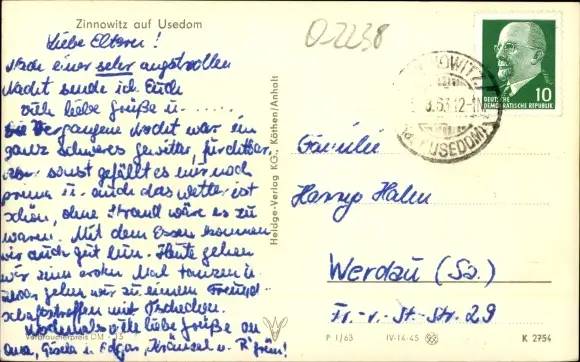 Zinnowitz auf Usedom
Liebe Eltern!
Nach einer sehr angstvollen
Nacht sende ich Euch
viele liebe Grüße u. .....
Die Vergangene Nacht war ein
ganz schweres gewitter, furchtbar.
Aber sonst gefällt es mir noch
prima u. auch das wetter ist
schön, ohne Strand wäre es zu
warm. Mit dem Essen kommen
wir auch gut hin. Heute gehen
wir zum ersten Mal tanzen u.
zwar gehen wir zu einem Freund-
schaftstreffen mit Tschechen.
Nochmals viele liebe Grüße an
Oma, Gisela u. Edgar, Kräusel u.
Verbraucherpreis DM -,15
Heldge-Verlag KG., Köthen/Anhalt
O2238
ZINNOWITZ
(USEDOM)
DEUTSCHE
DEMOKRATISCHE REPUBLIK
10
Familie
Harry Hahn
Werdau (Sa.)
Fr.-v.-St-Str. 29
P 1/63 IV-14-45 K 2754